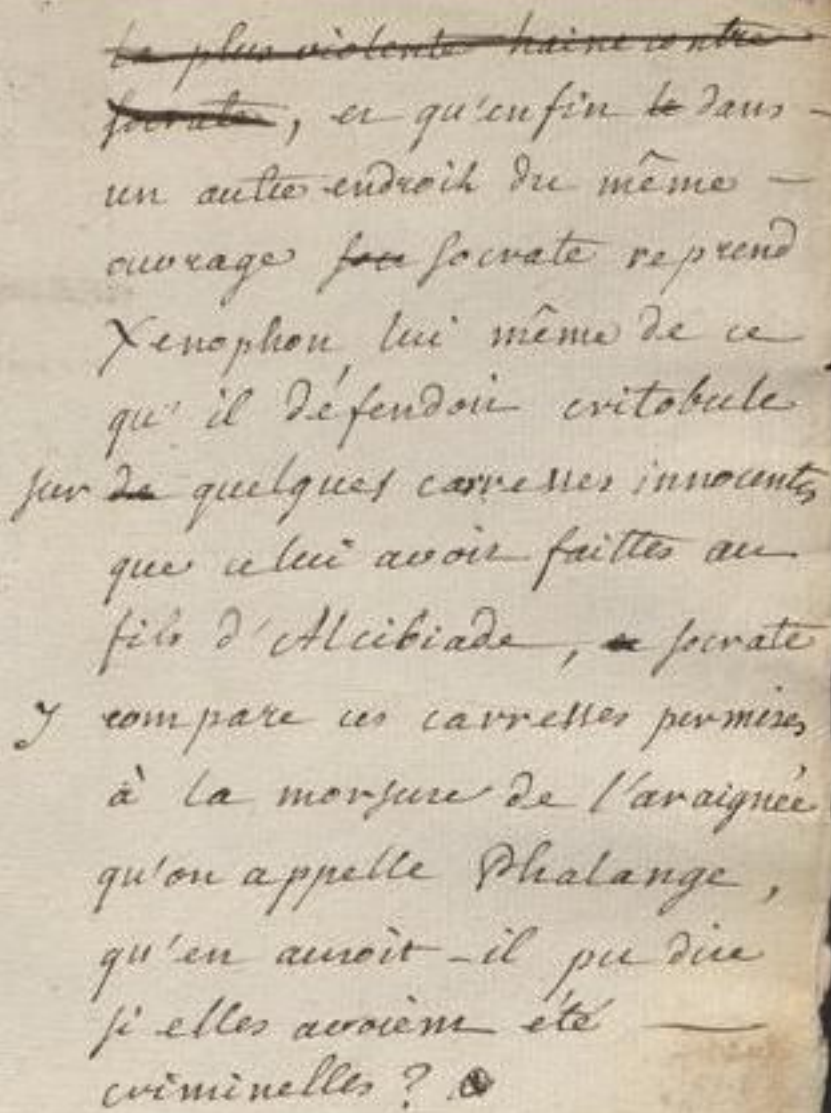 la plus violente haine contre
socrate, et qu'enfin le dans -
un autre endroit du même -
ouvrage soc socrate reprend
Xenophon lui même de ce
qu'il défendoit critobule
sur de quelques carresses innocentes
que celui avoit faittes au
fils d'Alcibiade, et socrate
y compare ces carresses permises
à la morsure de l'araignée
qu'on appelle Phalange,
qu'en auroit-il pu dire
si elles avoient été —
criminelles ?